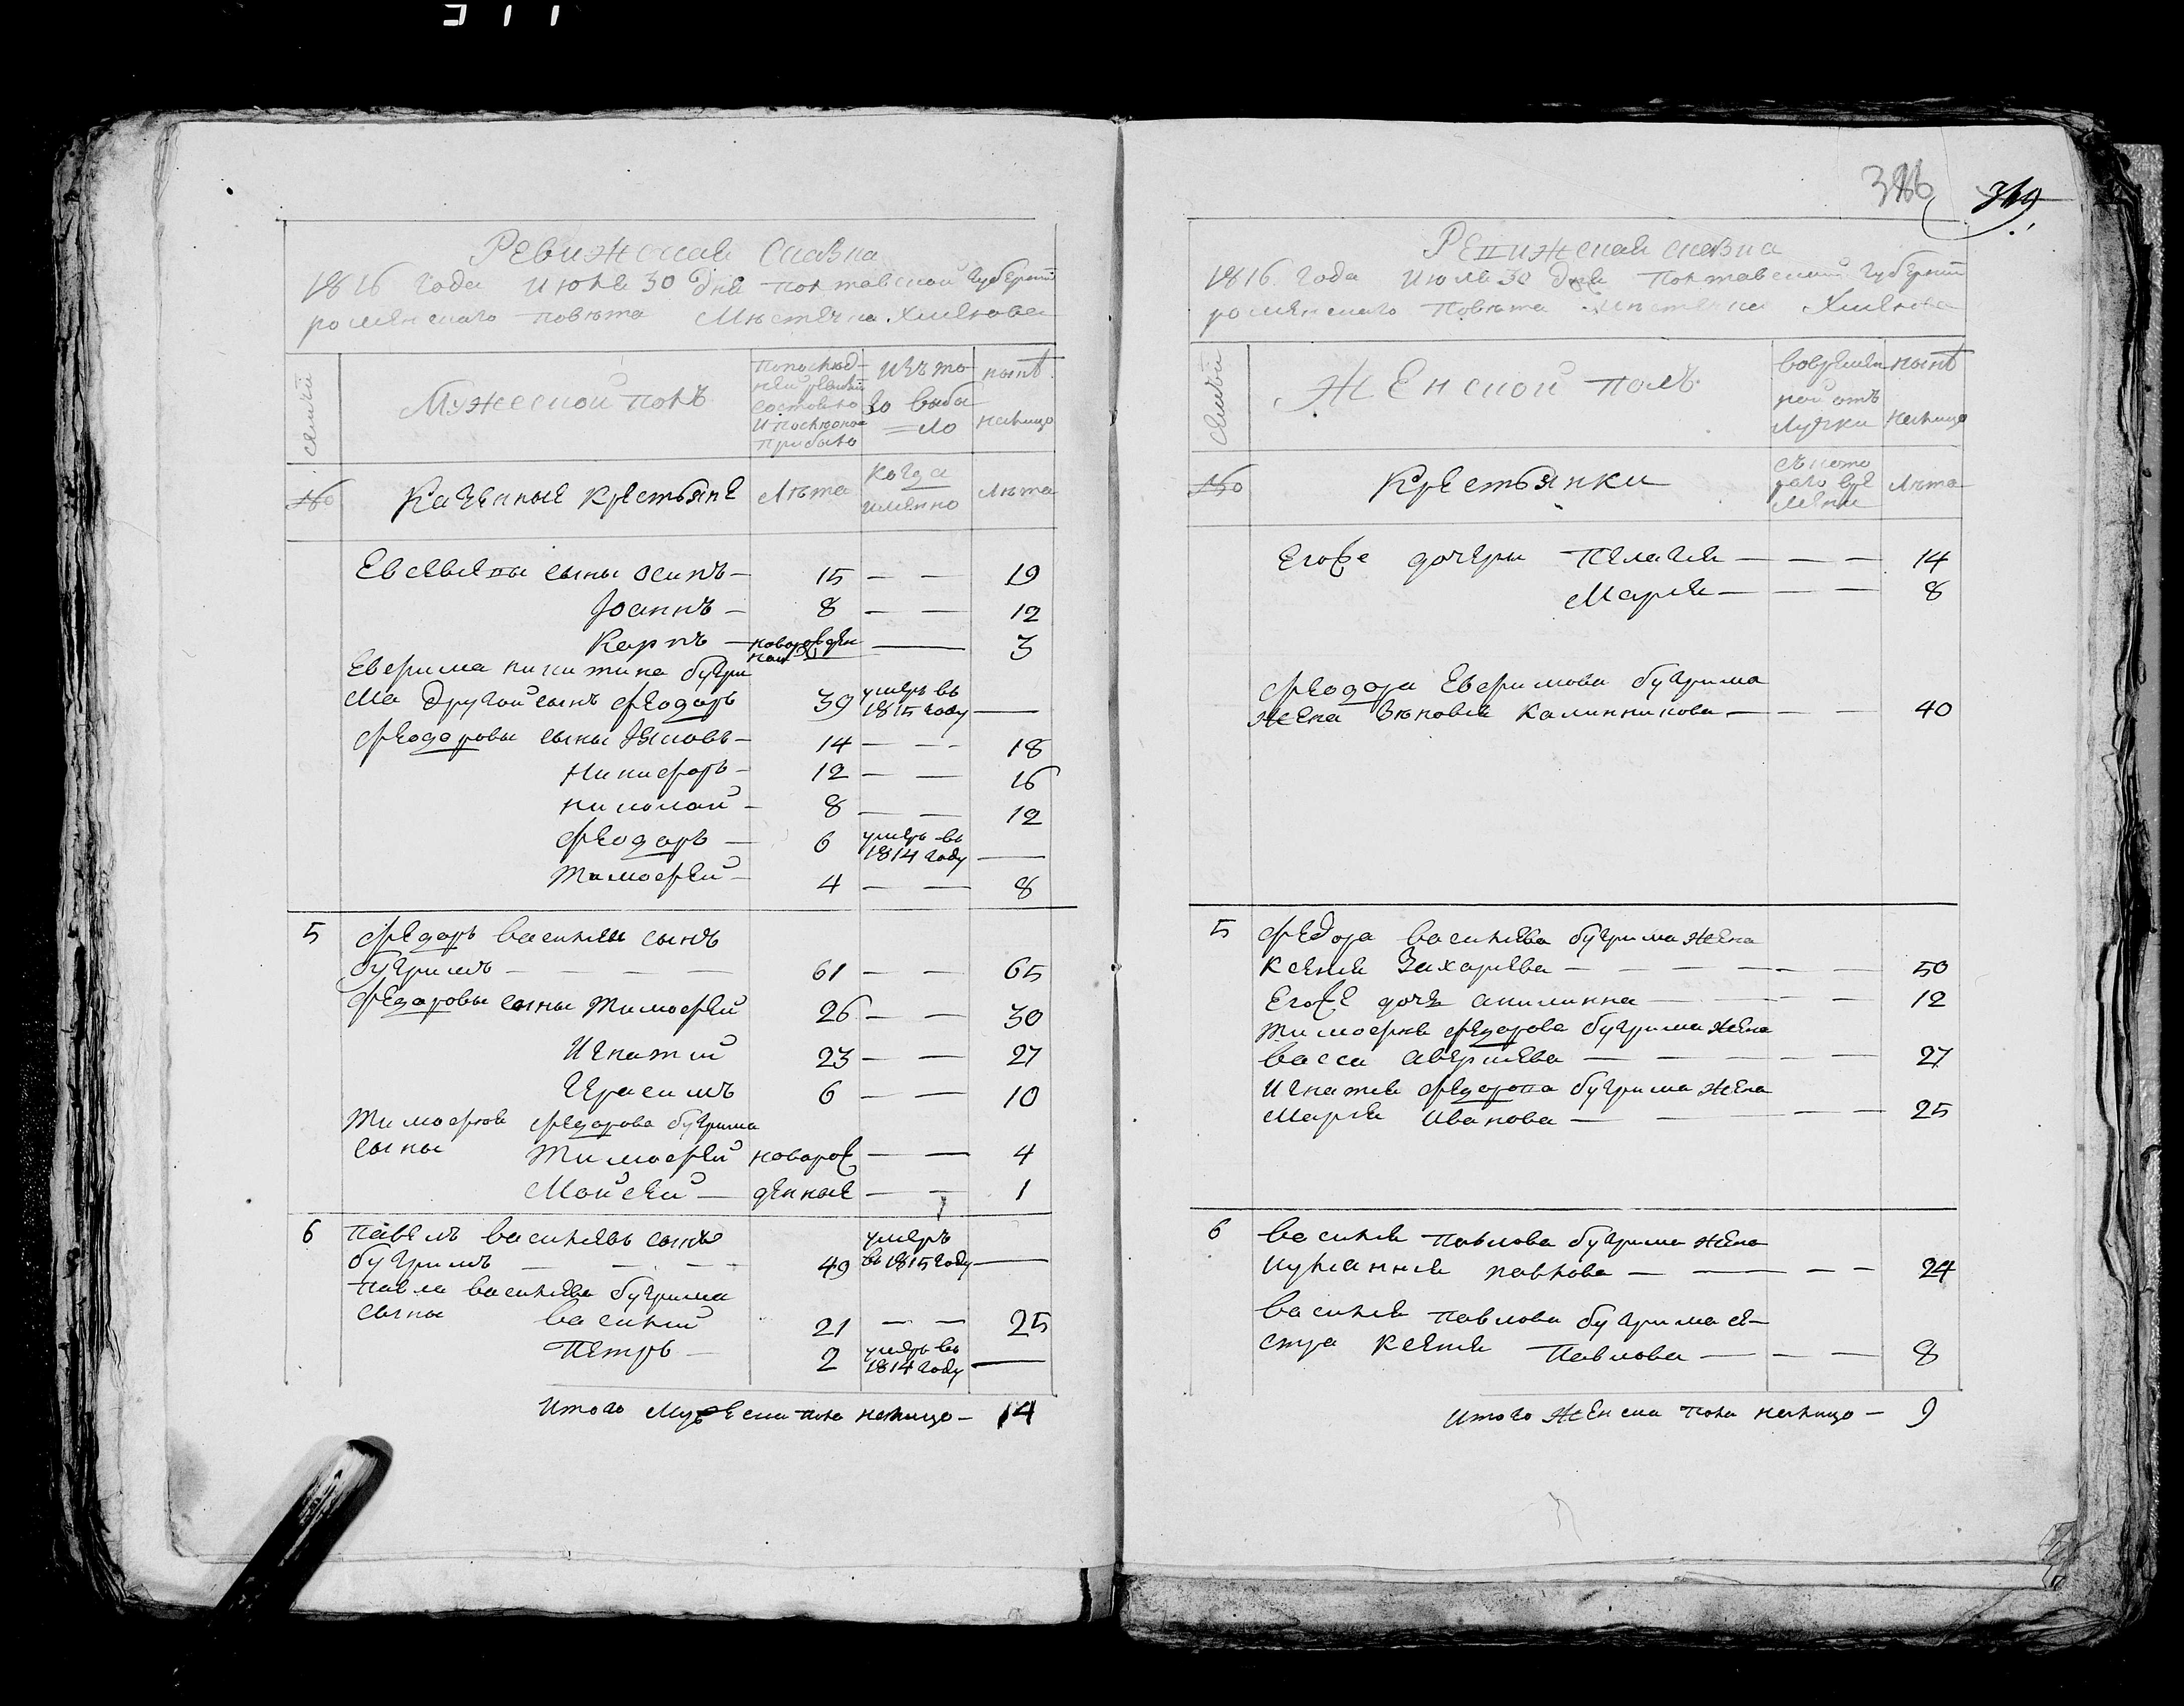 311
Ревижская сказка
1816 года Июля 30 дня полтавской Губерніи
роменскаго повѣта Мѣстечка Хмелова
семьи
Мужеской полъ
по послѣд-
ней ревизіи
состояло
и после оной
прибыло
Изъ то
го выбы
=ло
нынѣ
на лицо
№
Казенные крестьяне
Лѣта
когда
именно
Лѣта
Евсевіевы сыны осипъ — 15 — — 19
Іоаннъ — 8 — — 12
Карпъ — новорожден
ной — 3
Евфима никитина бугри
ма другой сынъ феодоръ 39 умеръ въ
1815 году —
феодоровы сыны Яковъ — 14 — — 18
Никифоръ — 12 — — 16
николай — 8 — — 12
феодоръ — 6 умеръ въ
1814 году —
Тимофей — 4 — — 8
5 федоръ васильевъ сынъ
бугримъ — — — 61 — — 65
федоровы сыны Тимофей 26 — — 30
Игнатій 23 — — 27
Герасимъ 6 — — 10
Тимофея федорова бугрима
сыны Тимофей новорож — — 4
Мойсей — денные — — 1
6 павелъ васильевъ сынъ
бугримъ — — — 49 умеръ
въ 1815 году —
павла васильева бугрима
сыны василий 21 — — 25
Петръ — 2 умеръ въ
1814 году —
Итого мужеска пола налицо — 14
386 319
Ревижская сказка
1816 года Июля 30 дня полтавской губерніи
роменскаго повѣта мѣстечка Хмелова
семьи
Женской полъ
вовремен
ной отъ
лучки
нынѣ
налицо
№
Крестьянки
съ кото
раго вре
мени
Лѣта
Егоже дочери пелагия — — — 14
Мария — — — 8
феодора Евфимова бугрима
жена Зѣновия Калинникова — — — 40
5 федора васильева бугрима жена
ксения Захариева — — — — — 50
Егоже дочь акилинна — — — 12
Тимофея федорова бугрима жена
васса авериева — — — — — 27
Игнатия федорова бугрима жена
Мария Иванова — — — — 25
6 василия павлова бугрима жена
иулианния павлова — — — — 24
василия павлова бугрима се-
стра ксения павлова — — — 8
Итого женска пола налицо — 9